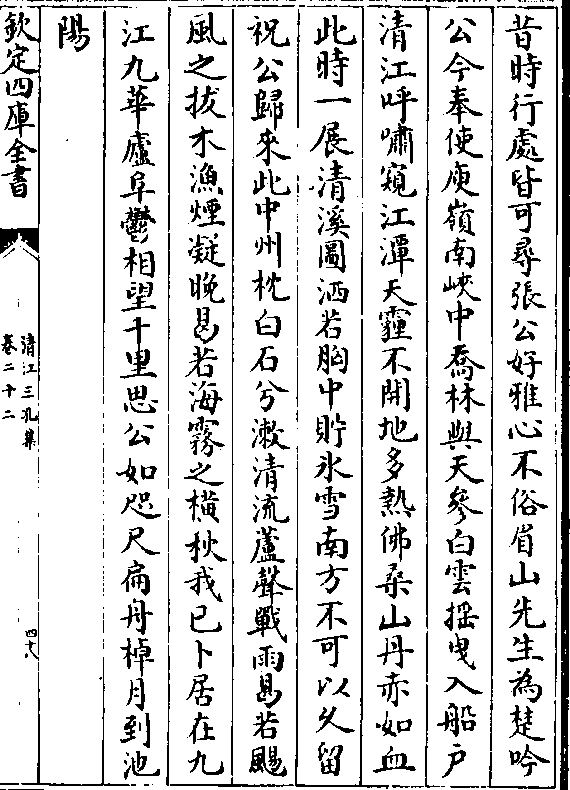 昔時行處皆可尋張公好雅心不俗眉山先生為楚吟
公今奉使庾嶺南峽中喬林與天參白雲摇曳入船户
清江呼嘯窺江潭天霾不開地多熱佛桑山丹赤如血
此時一展清溪圖洒若胸中貯氷雪南方不可以久留
祝公歸來此中州枕白石兮漱清流蘆聲戰雨曷若颶
風之拔木漁煙凝晚曷若海霧之横秋我已卜居在九
江九華廬阜鬱相望千里思公如咫尺扁舟棹月到池
陽
欽定四庫全書
清江三孔集
卷二十二
四十八